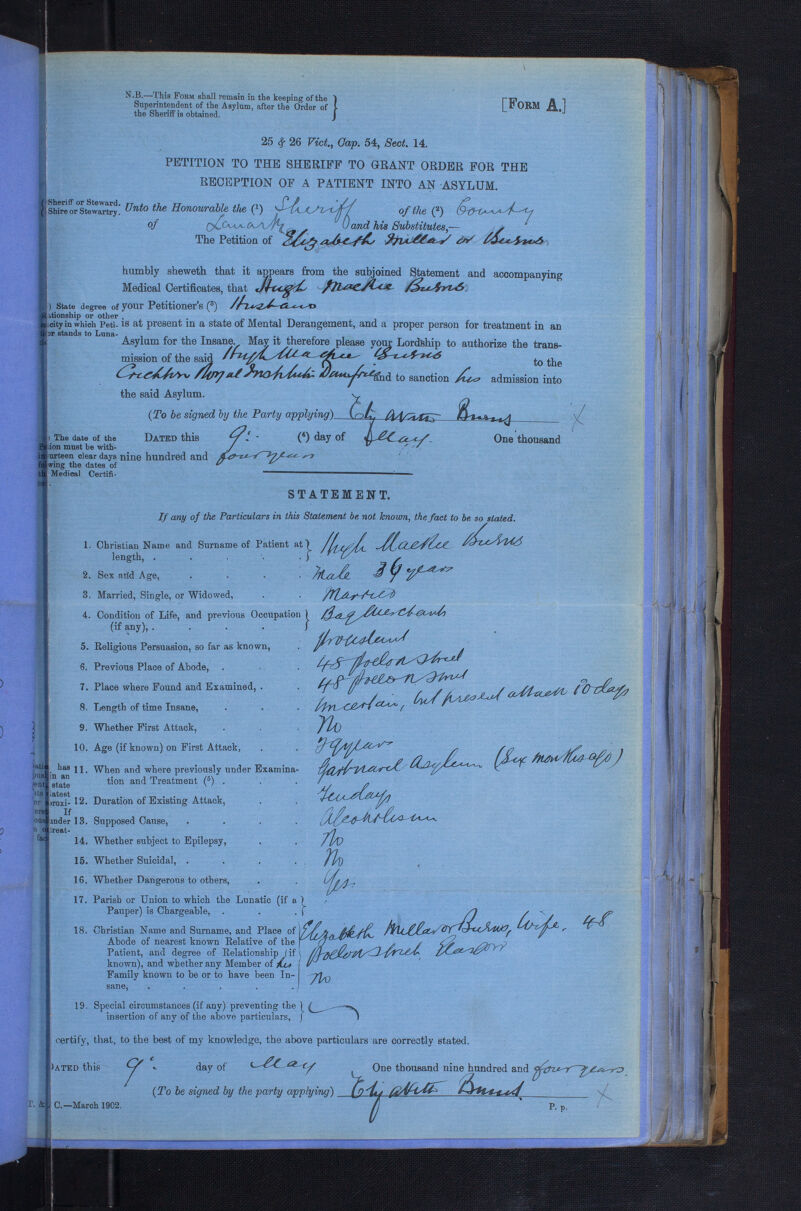 N.B.—This Form shall remain in the keeping of the
Superintendent of the Asylum, after the Order of
the Sheriff is obtained.
[Form A.]
25 & 26 Vict., Cap. 54, Sect. 14.
PETITION TO THE SHERIFF TO GRANT ORDER FOR THE
RECEPTION OF A PATIENT INTO AN ASYLUM.
Sheriff or Steward.
Shire or Stewartry.
Unto the Honourable the (1) Sheriff of the (2) County
of Lanark and his Substitutes,—
The Petition of Elizabeth Millar or Burns
humbly sheweth that it appears from the subjoined Statement and accompanying
Medical Certificates, that Hugh Mackie Burns
) State degree of
tionship or other
city in which Peti-
or stands to Luna-
your Petitioner's (3) Husband
is at present in a state of Mental Derangement, and a proper person for treatment in an
Asylum for the Insane. May it therefore please your Lordship to authorize the trans-
mission of the said Hugh Mackie Burns to the
Crichton Royal Institution Dumfries and to sanction his admission into
the said Asylum.
(To be signed by the Party applying) Elizabeth Burns X
The date of the
ion must be with-
urteen clear days
wing the dates of
Medical Certifi-
Dated this 9th (4) day of May One thousand
nine hundred and four years
STATEMENT.
If any of the Particulars in this Statement be not known, the fact to be so stated.
1. Christian Name and Surname of Patient at
length, . Hugh Mackie Burns
2. Sex and Age, Male 39 years
3. Married, Single, or Widowed, Married
4. Condition of Life, and previous Occupation
(if any), . Bag Merchant
5. Religious Persuasion, so far as known, Protestant
6. Previous Place of Abode, . 48 Street
7. Place where Found and Examined, . 48 Street
8. Length of time Insane, Uncertain, but present attack 10 days
9. Whether First Attack, No
10. Age (if known) on First Attack, 39 years
has
in an
state
latest
proxi-
If
under
treat-
11. When and where previously under Examina-
tion and Treatment (5) . Gartnavel Asylum (Six months ago)
12. Duration of Existing Attack, Ten days
13. Supposed Cause, Alcoholism
14. Whether subject to Epilepsy, No
15. Whether Suicidal, . No
16. Whether Dangerous to others, Yes.
17. Parish or Union to which the Lunatic (if a
Pauper) is Chargeable, .
18. Christian Name and Surname, and Place of
Abode of nearest known Relative of the
Patient, and degree of Relationship (if
known), and whether any Member of his
Family known to be or to have been In-
sane,
Elizabeth Millar or Burns, Wife, 48
Street Glasgow
No
19. Special circumstances (if any) preventing the
insertion of any of the above particulars,
certify, that, to the best of my knowledge, the above particulars are correctly stated.
Dated this 9th day of May One thousand nine hundred and four years.
(To be signed by the party applying) Elizabeth Burns X
C.—March 1902.
P. p.